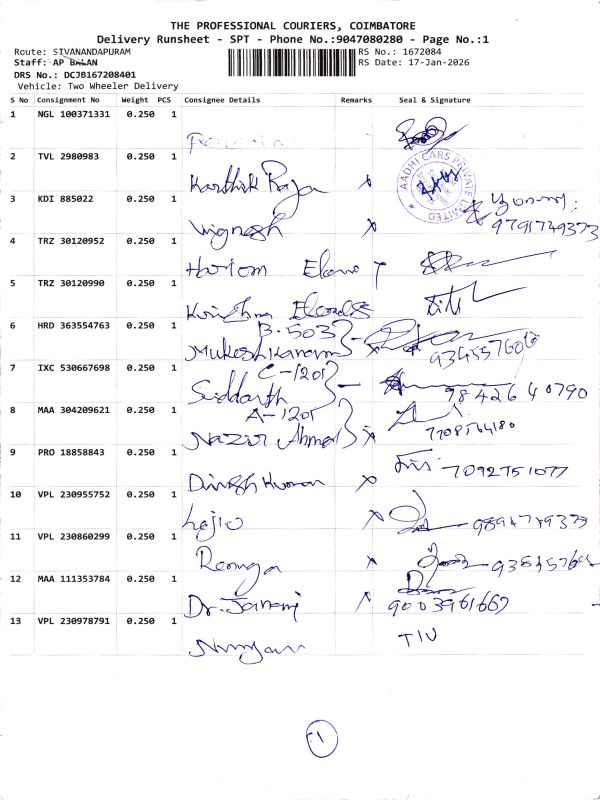 THE PROFESSIONAL COURIERS, COIMBATORE
Delivery Runsheet - SPT - Phone No.:9047080280 - Page No.:1
Route: SIVANANDAPURAM
Staff: AP BALAN
DRS No.: DCJB167208401
Vehicle: Two Wheeler Delivery
RS No.: 1672084
RS Date: 17-Jan-2026
S No Consignment No Weight PCS Consignee Details Remarks Seal & Signature
1 NGL 100371331 0.250 1
2 TVL 2980983 0.250 1 Karthik Raja x
AADHI CARS PRIVATE LIMITED
3 KDI 885022 0.250 1 Vignesh x 9791749373
4 TRZ 30120952 0.250 1 Hariom
5 TRZ 30120990 0.250 1 Krishna
6 HRD 363554763 0.250 1 B-503 Mukeshkanam
7 IXC 530667698 0.250 1 C-1201 Siddarth 9842640790
8 MAA 304209621 0.250 1 A-1201 Nazir Ahmed x 7708564180
9 PRO 18858843 0.250 1 Dinesh Kumar x 7092751077
10 VPL 230955752 0.250 1 x 9894749373
11 VPL 230860299 0.250 1 Ramya x
12 MAA 111353784 0.250 1 Dr. Janani x 9003961667
13 VPL 230978791 0.250 1